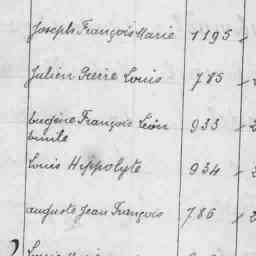 Joseph François Marie 1195
Julien Pierre Louis 785
Eugène François Léon 933
Emile
Louis Hippolyte 934
Auguste Jean François 786
Louis